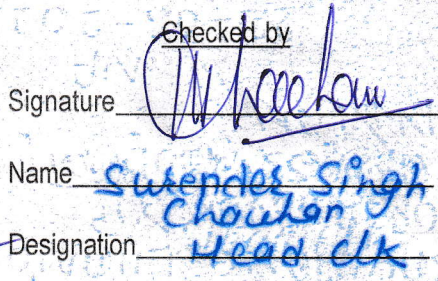 Checked by
Signature
Name Surender Singh
Chauhan
Designation Head clk